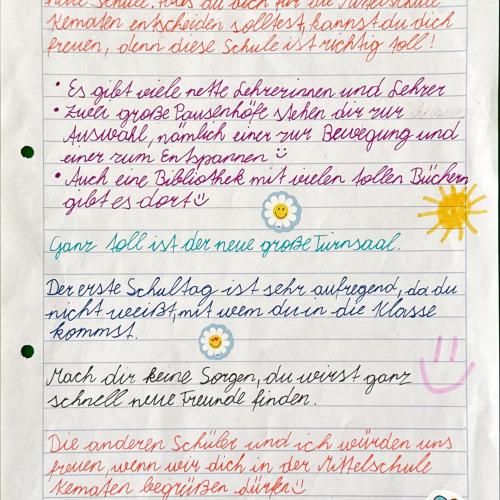 neue Schule. Falls du dich für die Mittelschule
Kematen entscheiden solltest, kannst du dich
freuen, denn diese Schule ist richtig toll!
• Es gibt viele nette Lehrerinnen und Lehrer
• Zwei große Pausenhöfe stehen dir zur
Auswahl, nämlich einer zur Bewegung und
einer zum Entspannen
• Auch eine Bibliothek mit vielen tollen Büchern
gibt es dort
Ganz toll ist der neue große Turnsaal.
Der erste Schultag ist sehr aufregend, da du
nicht weißt, mit wem du in die Klasse
kommst.
Mach dir keine Sorgen, du wirst ganz
schnell neue Freunde finden.
Die anderen Schüler und ich würden uns
freuen, wenn wir dich in der Mittelschule
Kematen begrüßen dürfen